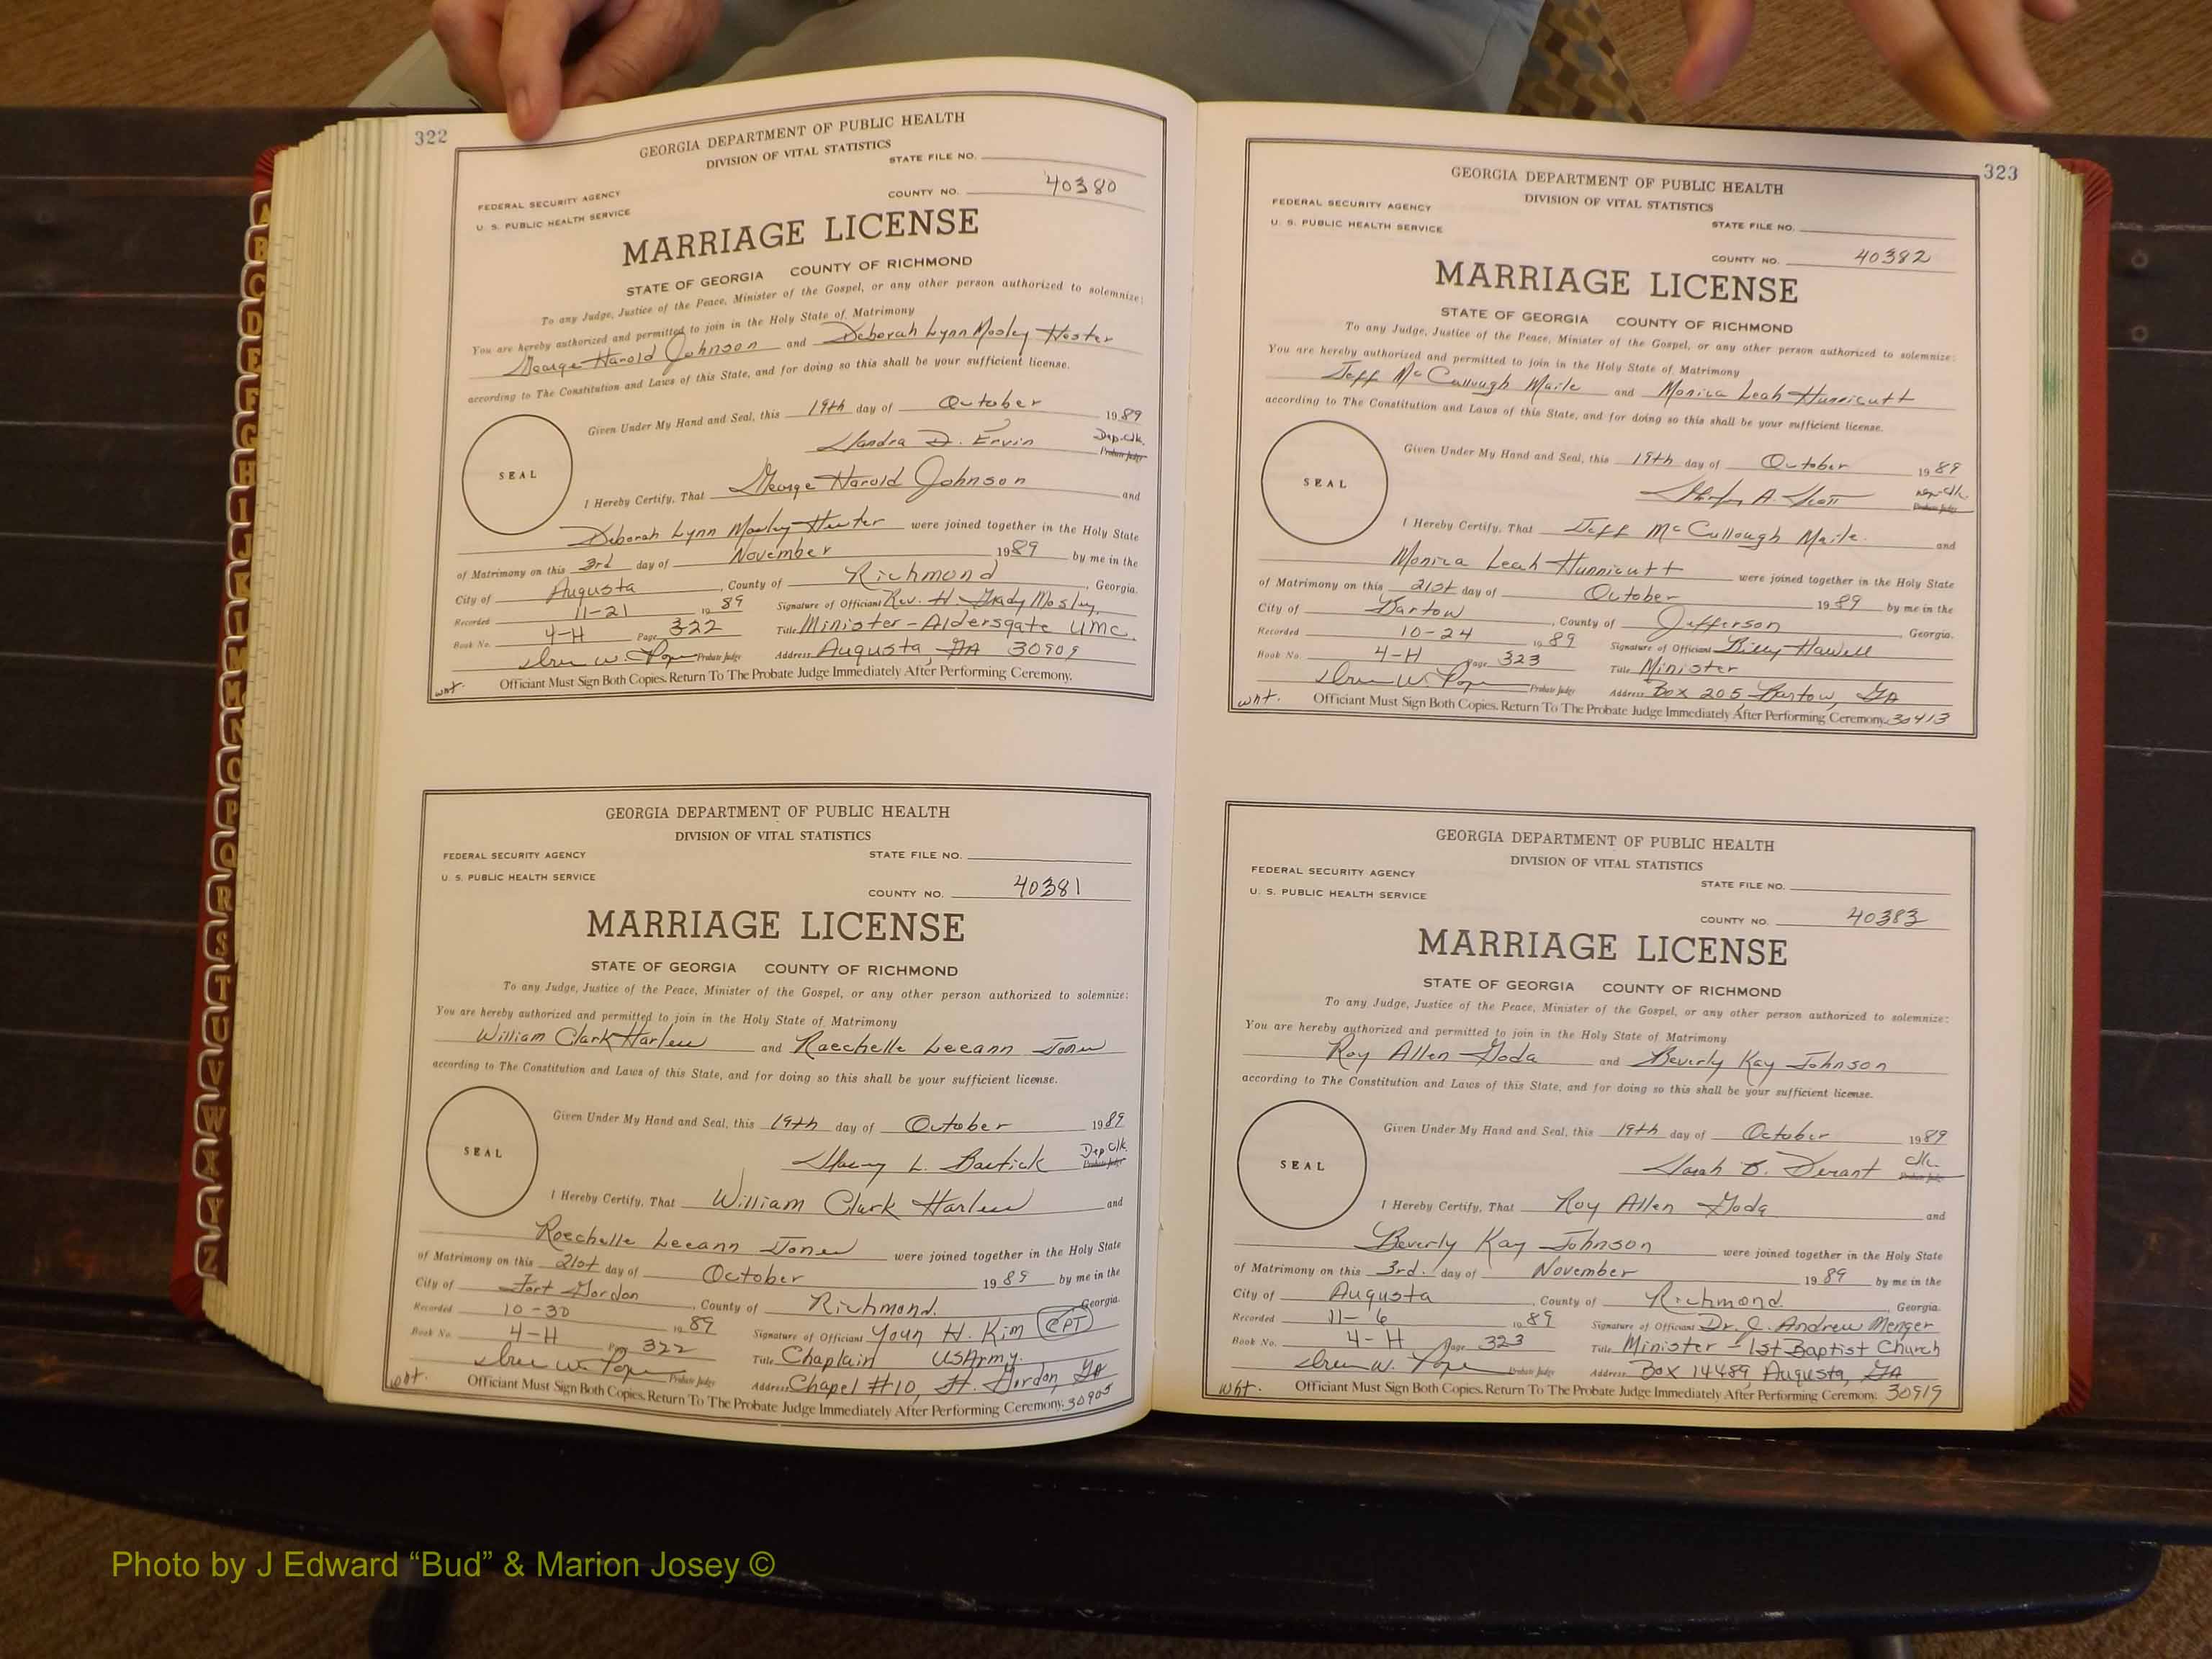 322
GEORGIA DEPARTMENT OF PUBLIC HEALTH
DIVISION OF VITAL STATISTICS
STATE FILE NO.
FEDERAL SECURITY AGENCY
COUNTY NO. 40380
U. S. PUBLIC HEALTH SERVICE
MARRIAGE LICENSE
STATE OF GEORGIA COUNTY OF RICHMOND
To any Judge, Justice of the Peace, Minister of the Gospel, or any other person authorized to solemnize:
You are hereby authorized and permitted to join in the Holy State of Matrimony
George Harold Johnson and Deborah Lynn Mosley Hester
according to The Constitution and Laws of this State, and for doing so this shall be your sufficient license.
Given Under My Hand and Seal, this 19th day of October 1989
Sandra D. Ervin Dep. Clk. Probate Judge
SEAL
I Hereby Certify, That George Harold Johnson and
Deborah Lynn Mosley Hester were joined together in the Holy State
of Matrimony on this 3rd day of November 1989 by me in the
City of Augusta, County of Richmond, Georgia.
Recorded 11-21 1989 Signature of Officiant Rev. H. Grady Mosley,
Book No. 4-H Page 322 Title Minister-Aldersgate UMC.
W. Pope Probate Judge Address Augusta, GA 30909
wht. Officiant Must Sign Both Copies. Return To The Probate Judge Immediately After Performing Ceremony.
GEORGIA DEPARTMENT OF PUBLIC HEALTH
DIVISION OF VITAL STATISTICS
FEDERAL SECURITY AGENCY STATE FILE NO.
U. S. PUBLIC HEALTH SERVICE
COUNTY NO. 40381
MARRIAGE LICENSE
STATE OF GEORGIA COUNTY OF RICHMOND
To any Judge, Justice of the Peace, Minister of the Gospel, or any other person authorized to solemnize:
You are hereby authorized and permitted to join in the Holy State of Matrimony
William Clark and Raechelle Leeann Jones
according to The Constitution and Laws of this State, and for doing so this shall be your sufficient license.
Given Under My Hand and Seal, this 19th day of October 1989
L. Dep Clk. Probate Judge
SEAL
I Hereby Certify, That William Clark and
Raechelle Leeann Jones were joined together in the Holy State
of Matrimony on this 21st day of October 1989 by me in the
City of Fort Gordon, County of Richmond. Georgia.
Recorded 10-30 1989 Signature of Officiant Youn H. Kim (CPT)
Book No. 4-H Page 322 Title Chaplain US Army.
W. Pope Probate Judge Address Chapel #10, Ft. Gordon, Ga
wht. Officiant Must Sign Both Copies. Return To The Probate Judge Immediately After Performing Ceremony. 30905
323
GEORGIA DEPARTMENT OF PUBLIC HEALTH
DIVISION OF VITAL STATISTICS
FEDERAL SECURITY AGENCY
STATE FILE NO.
U. S. PUBLIC HEALTH SERVICE
COUNTY NO. 40382
MARRIAGE LICENSE
STATE OF GEORGIA COUNTY OF RICHMOND
To any Judge, Justice of the Peace, Minister of the Gospel, or any other person authorized to solemnize:
You are hereby authorized and permitted to join in the Holy State of Matrimony
Jeff McCullough Maile and Monica Leah Hunnicutt
according to The Constitution and Laws of this State, and for doing so this shall be your sufficient license.
Given Under My Hand and Seal, this 19th day of October 1989
A. Scott Dep. Clk. Probate Judge
SEAL
I Hereby Certify, That Jeff McCullough Maile. and
Monica Leah Hunnicutt were joined together in the Holy State
of Matrimony on this 21st day of October 1989 by me in the
City of Bartow, County of Jefferson, Georgia.
Recorded 10-24 1989 Signature of Officiant Billy Hawell
Book No. 4-H Page 323 Title Minister
W. Pope Probate Judge Address Box 205, Bartow, GA
wht. Officiant Must Sign Both Copies. Return To The Probate Judge Immediately After Performing Ceremony. 30413
GEORGIA DEPARTMENT OF PUBLIC HEALTH
DIVISION OF VITAL STATISTICS
FEDERAL SECURITY AGENCY
STATE FILE NO.
U. S. PUBLIC HEALTH SERVICE
COUNTY NO. 40383
MARRIAGE LICENSE
STATE OF GEORGIA COUNTY OF RICHMOND
To any Judge, Justice of the Peace, Minister of the Gospel, or any other person authorized to solemnize:
You are hereby authorized and permitted to join in the Holy State of Matrimony
Roy Allen Goda and Beverly Kay Johnson
according to The Constitution and Laws of this State, and for doing so this shall be your sufficient license.
Given Under My Hand and Seal, this 19th day of October 1989
Sarah B. Clk. Probate Judge
SEAL
I Hereby Certify, That Roy Allen Goda and
Beverly Kay Johnson were joined together in the Holy State
of Matrimony on this 3rd. day of November 1989 by me in the
City of Augusta, County of Richmond. Georgia.
Recorded 11-6 1989 Signature of Officiant Dr. C. Andrew Menger
Book No. 4-H Page 323 Title Minister-1st Baptist Church
W. Pope Probate Judge Address Box 14489, Augusta, GA
wht. Officiant Must Sign Both Copies. Return To The Probate Judge Immediately After Performing Ceremony. 30919
A
B
C
D
E
F
G
H
I
J
K
L
M
Mc
N
O
P
Q
R
S
T
U
V
W
X
Y
Z
Photo by J Edward “Bud” & Marion Josey ©